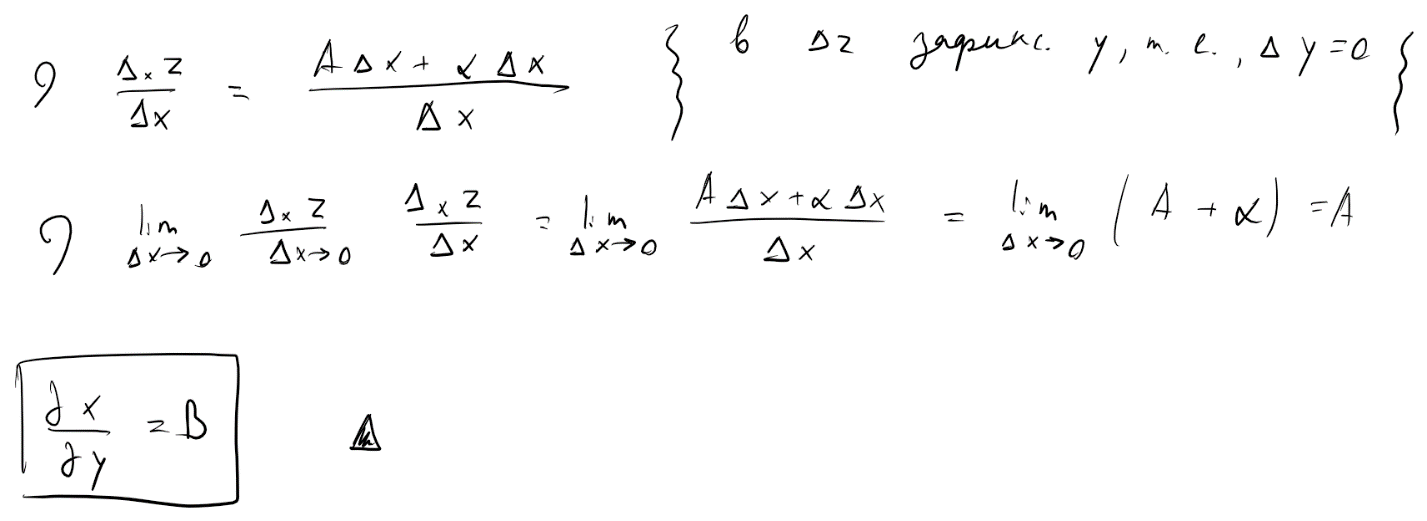 ∂) Δₓz/Δx = (AΔx + αΔx)/Δx { в Δz зафикс. y, т. е., Δy=0 }
∂) lim Δx→0 Δₓz/Δx→0 Δₓz/Δx = lim Δx→0 (AΔx+αΔx)/Δx = lim Δx→0 (A + α) = A
∂x/∂y = B ▲